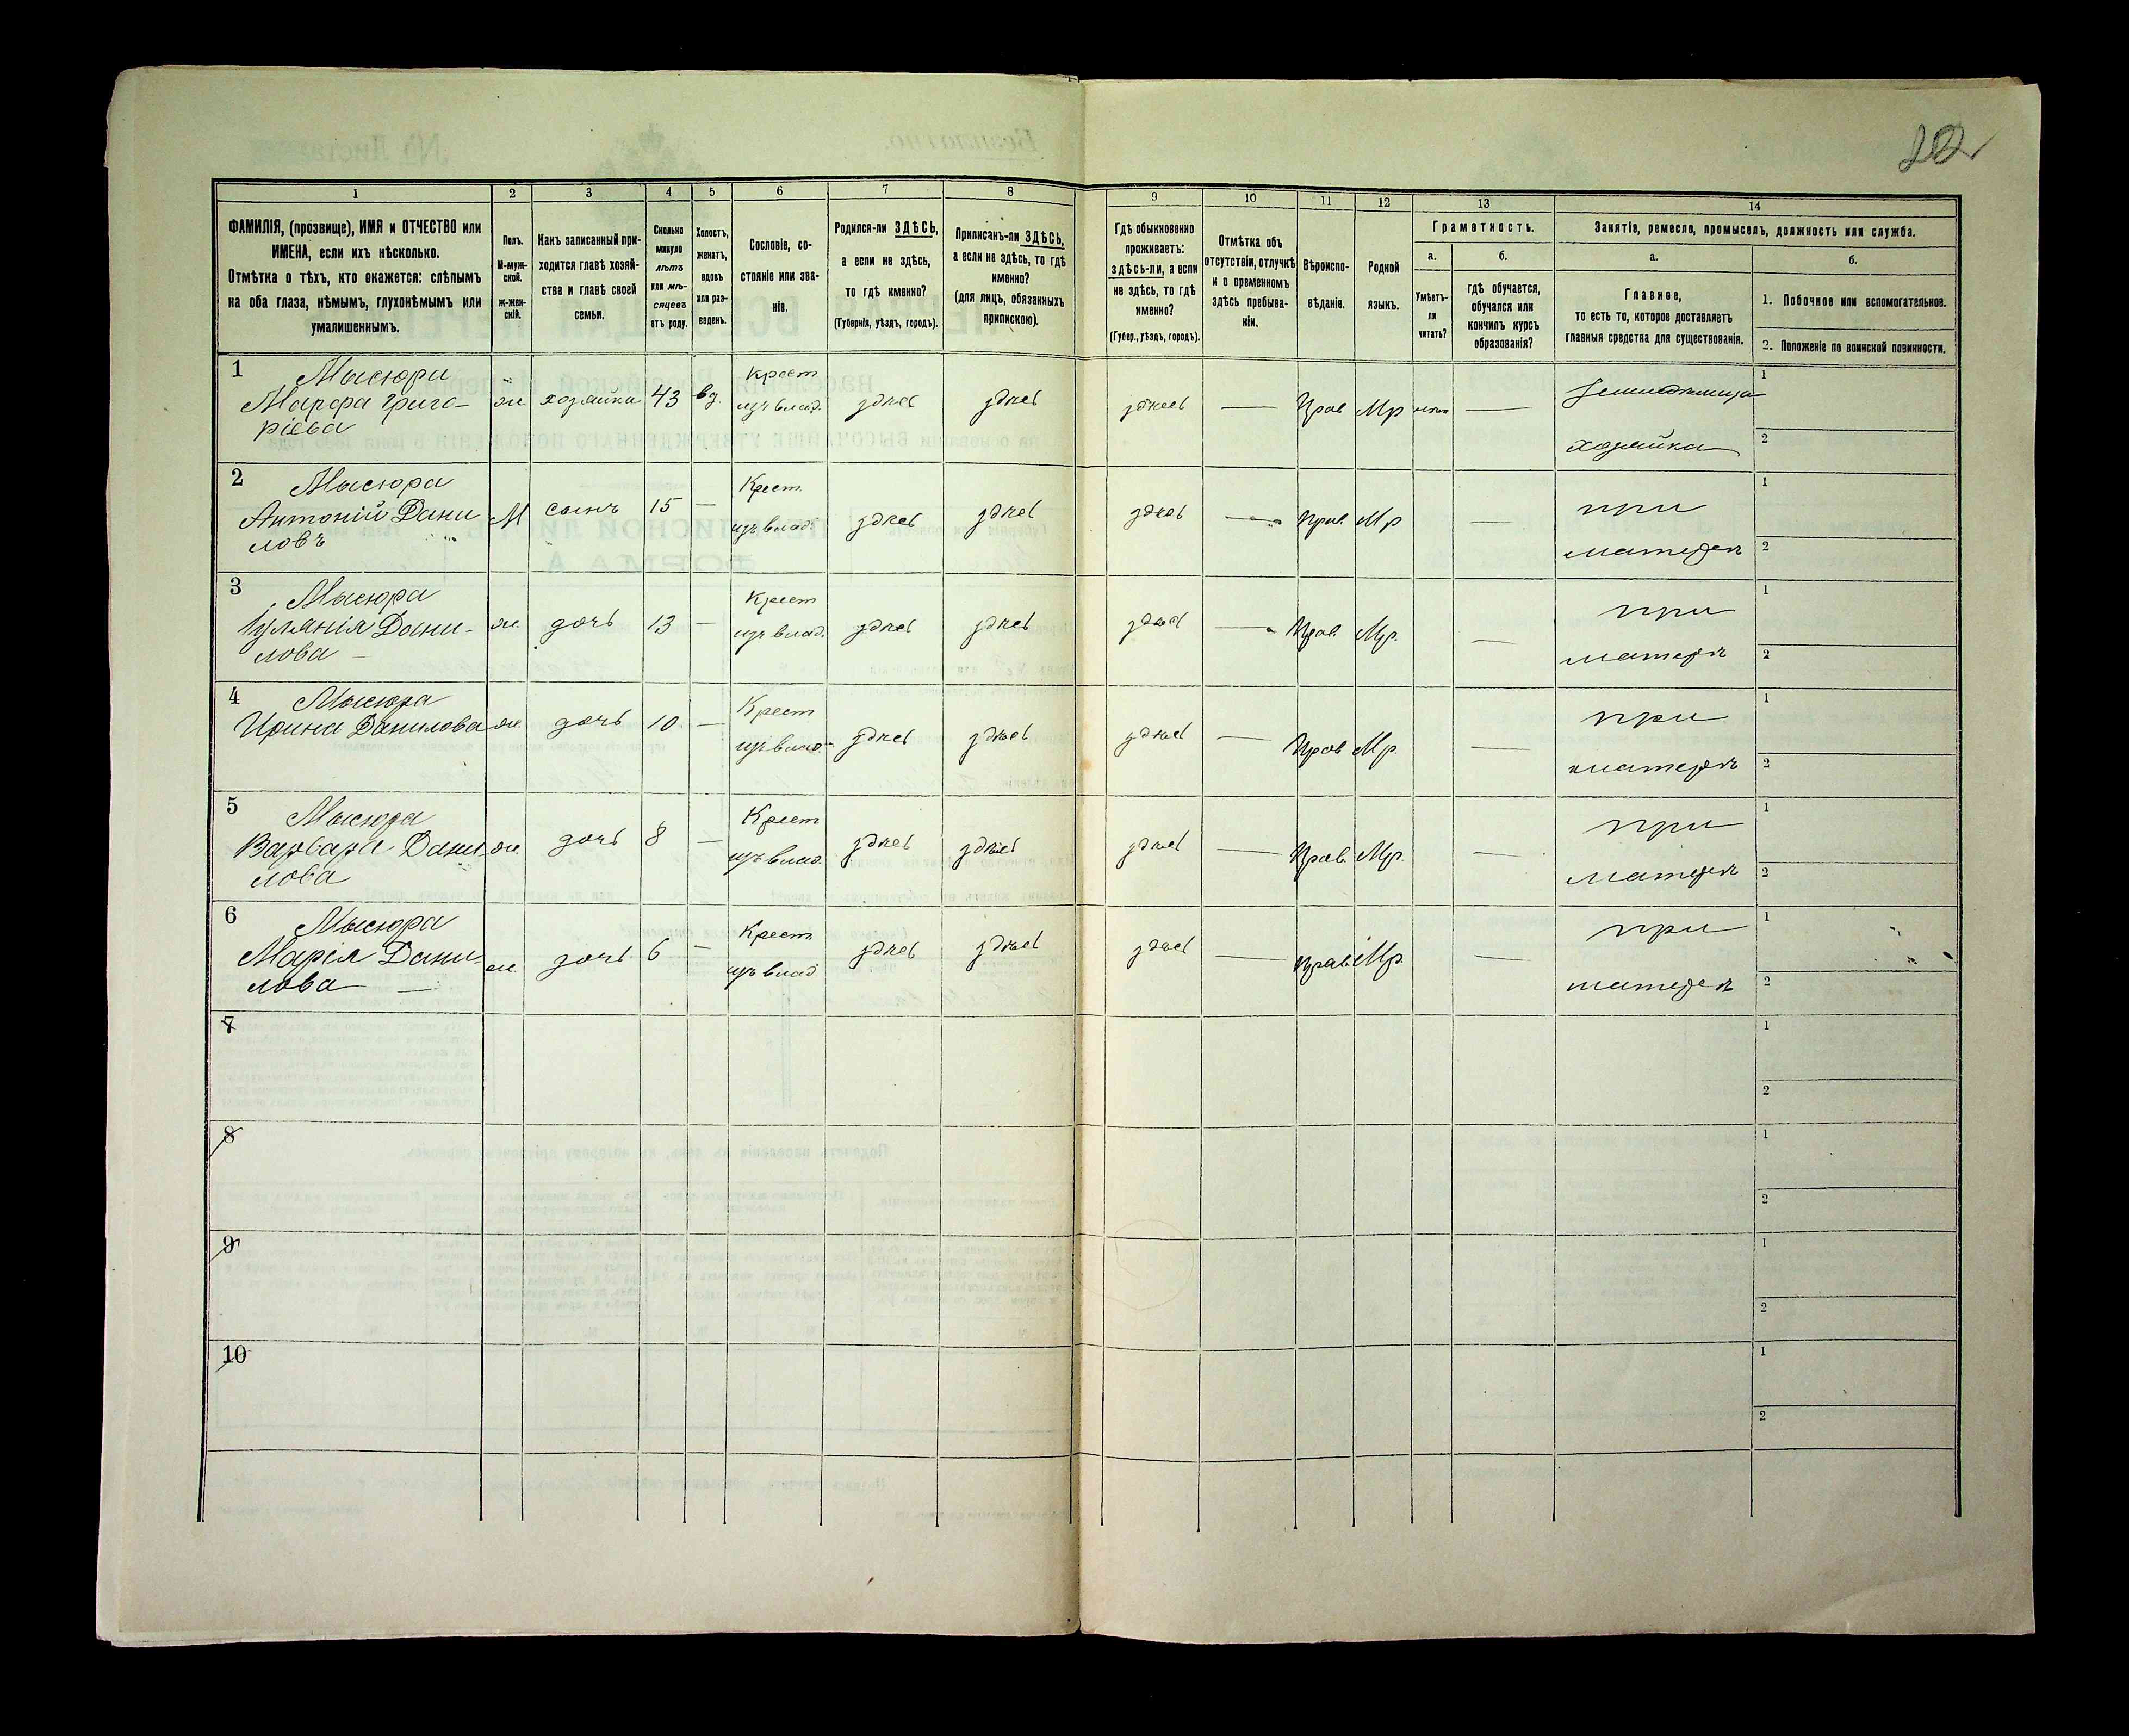 22
1 2 3 4 5 6 7 8 9 10 11 12 13 14
ФАМИЛІЯ, (прозвище), ИМЯ и ОТЧЕСТВО или
ИМЕНА, если ихъ нѣсколько.
Отмѣтка о тѣхъ, кто окажется: слѣпымъ
на оба глаза, нѣмымъ, глухонѣмымъ или
умалишеннымъ.
Полъ.
М-муж-
ской.
Ж-жен-
скій.
Какъ записанный при-
ходится главѣ хозяй-
ства и главѣ своей
семьи.
Сколько
минуло
лѣтъ
или мѣ-
сяцевъ
отъ роду.
Холостъ,
женатъ,
вдовъ
или раз-
веденъ.
Сословіе, со-
стояніе или зва-
ніе.
Родился-ли ЗДѢСЬ,
а если не здѣсь,
то гдѣ именно?
(Губернія, уѣздъ, городъ).
Приписанъ-ли ЗДѢСЬ,
а если не здѣсь, то гдѣ
именно?
(для лицъ, обязанныхъ
припискою).
Гдѣ обыкновенно
проживаетъ:
здѣсь-ли, а если
не здѣсь, то гдѣ
именно?
(Губер., уѣздъ, городъ).
Отмѣтка объ
отсутствіи, отлучкѣ
и о временномъ
здѣсь пребыва-
ніи.
Вѣроиспо-
вѣданіе.
Родной
языкъ.
Грамотность.
а.
Умѣетъ-
ли
читать?
б.
гдѣ обучается,
обучался или
кончилъ курсъ
образованія?
Занятіе, ремесло, промыселъ, должность или служба.
а.
Главное,
то есть то, которое доставляетъ
главныя средства для существованія.
б.
1. Побочное или вспомогательное.
2. Положеніе по воинской повинности.
1 Мысюра
Марфа Григо-
ріева
ж. хозяйка 43 вд. Крест. изъ влад. здѣсь здѣсь здѣсь — Прав Мр нѣтъ — Земледѣлица
хозяйка
1
2
2 Мысюра
Антоній Дани
ловъ
М сынъ 15 — Крест. изъ влад. здѣсь здѣсь здѣсь — Прав. Мр — при
матери
1
2
3 Мысюра
Іуліанія Дани-
лова —
ж. дочь 13 — Крест изъ влад. здѣсь здѣсь здѣсь — Прав. Мр. — при
матери
1
2
4 Мысюра
Ирина Данилова
ж. дочь 10 — Крест изъ влад. здѣсь здѣсь здѣсь — Прав Мр. — при
матери
1
2
5 Мысюра
Варвара Дани
лова
ж. дочь 8 — Крест изъ влад. здѣсь здѣсь здѣсь — Прав. Мр. — при
матери
1
2
6 Мысюра
Марія Дани-
лова —
ж. дочь 6 — Крест. изъ влад здѣсь здѣсь здѣсь — Прав. Мр. — при
матери
1
2
7
1
2
8
1
2
9
1
2
10
1
2